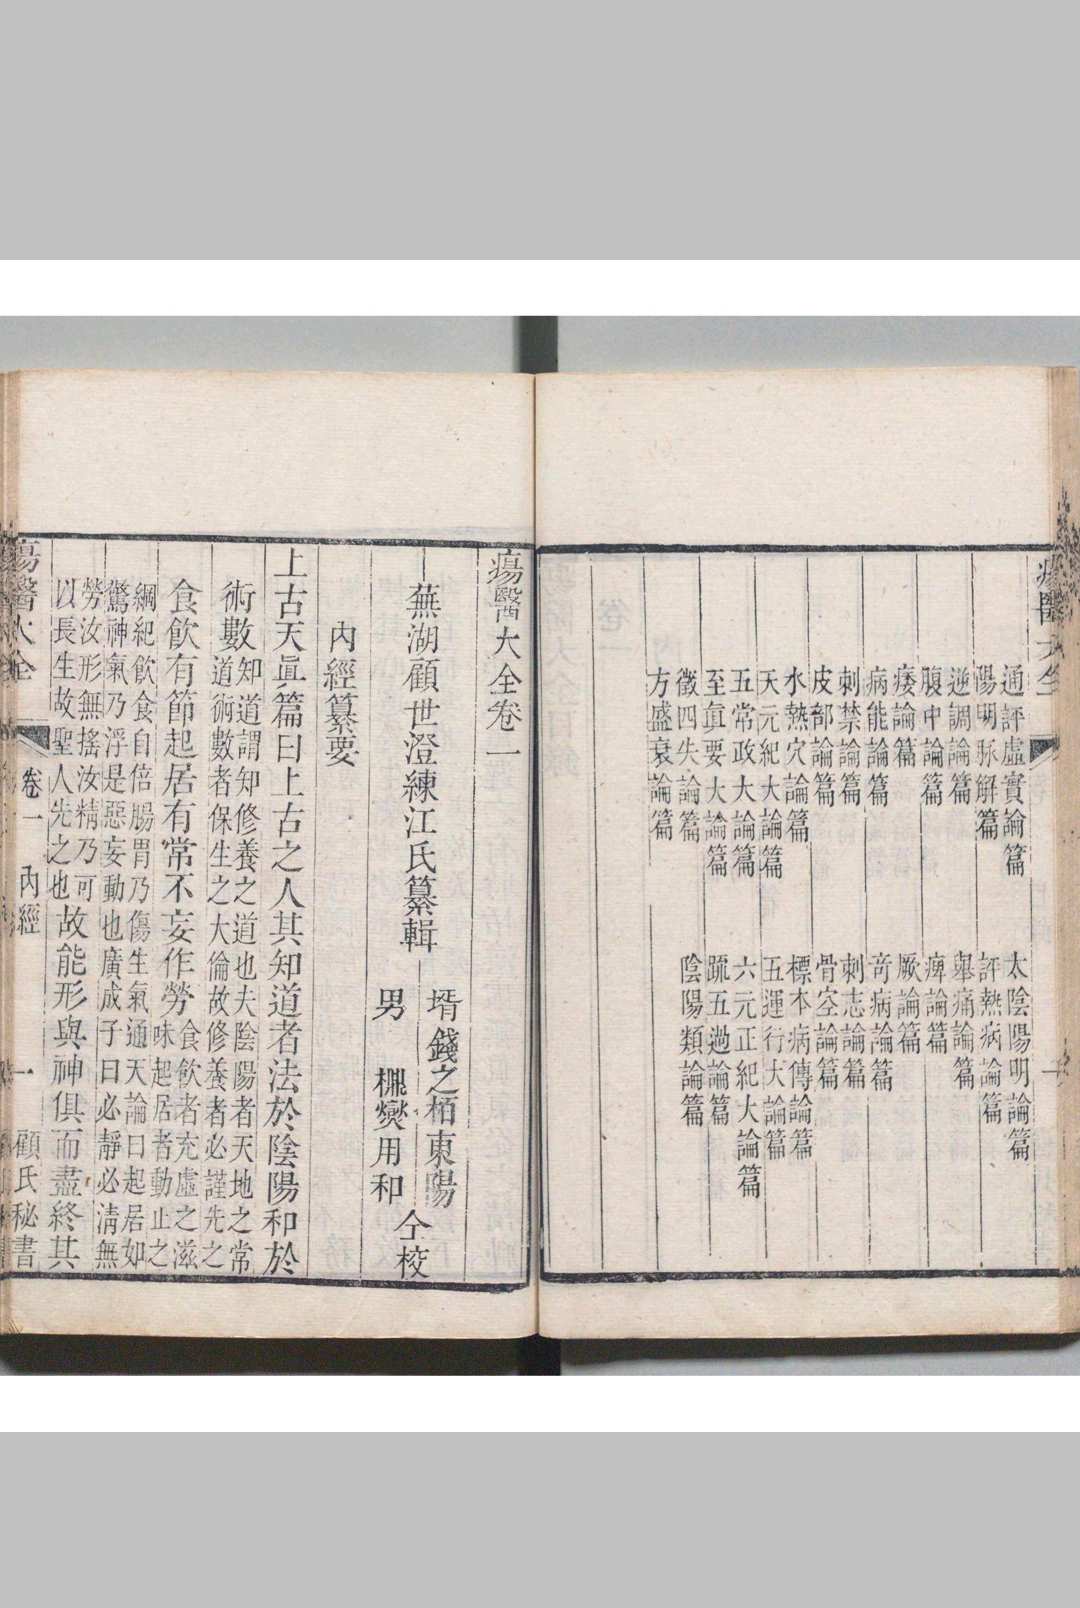 瘍醫大全
通評虛實論篇　太陰陽明論篇
陽明脉解篇　評熱病論篇
逆調論篇　舉痛論篇
腹中論篇　痺論篇
痿論篇　厥論篇
病能論篇　竒病論篇
刺禁論篇　刺志論篇
皮部論篇　骨空論篇
水熱穴論篇　標本病傳論篇
天元紀大論篇　五運行大論篇
五常政大論篇　六元正紀大論篇
至眞要大論篇　䟽五過論篇
徵四失論篇　陰陽類論篇
方盛衰論篇
瘍醫大全卷一
蕪湖顧世澄練江氏纂輯
壻錢之栢東陽
男　燮用和
仝校
內經纂要
上古天眞篇曰上古之人其知道者法於陰陽和於
術數知道謂知修養之道也夫陰陽者天地之常
道術數者保生之大倫故修養者必謹先之
食飲有節起居有常不妄作勞食飲者充虛之滋
味起居者動止之
綱紀飲食自倍腸胃乃傷生氣通天論曰起居如
驚神氣乃浮是惡妄動也廣成子曰必靜必清無
勞汝形無搖汝精乃可
以長生故聖人先之也故能形與神俱而盡終其
瘍醫大全　卷一　內經　一　顧氏秘書